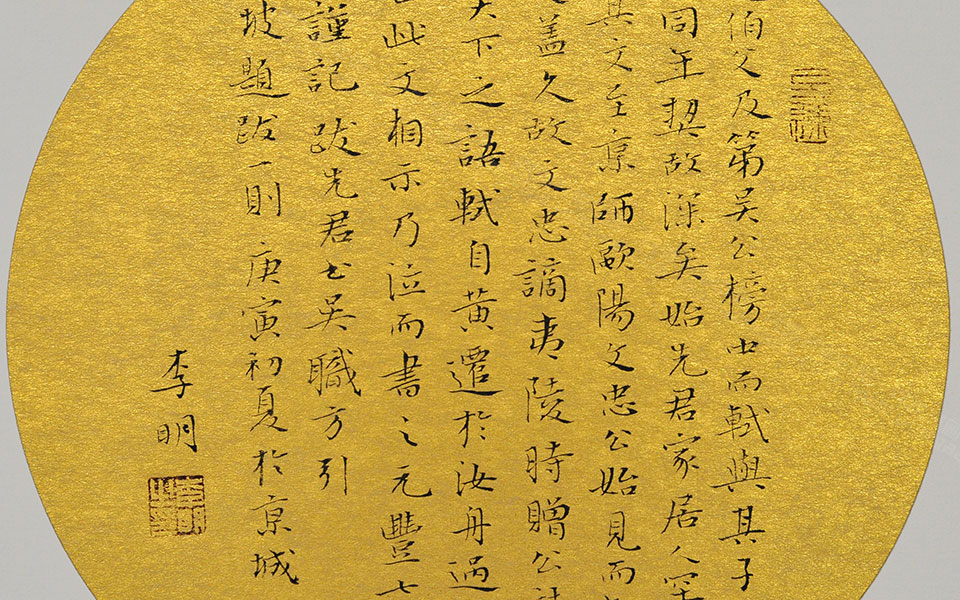 伯父及第吳公榜中而軾與其子
同年契故深矣始先君家居人罕
其文至京師歐陽文忠公始見而
蓋久故文忠謫夷陵時贈公
天下之語軾自黃遷於汝舟過
此文相示乃泣而書之元豐七
謹記跋先君書吳職方引
坡題跋一則庚寅初夏於京城
李明